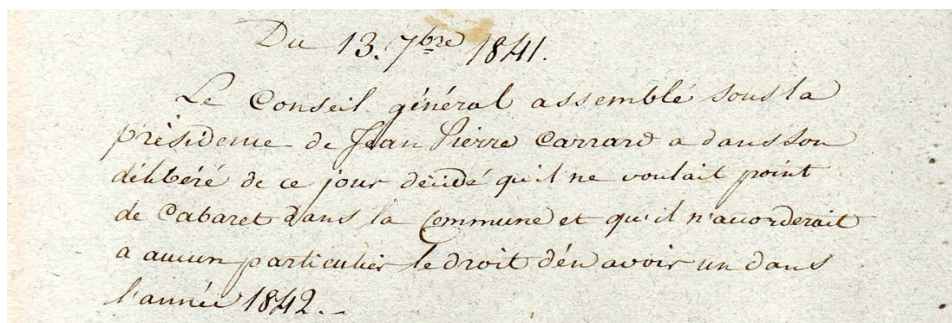 Du 13. 7bre 1841.
Le Conseil général assemblé sous la
présidence de Jean Pierre Carrard a dans son
délibéré de ce jour décidé qu'il ne voulait point
de Cabaret dans la Commune et qu'il n'accorderait
a aucun particulier le droit d'én avoir un dans
l'année 1842.-